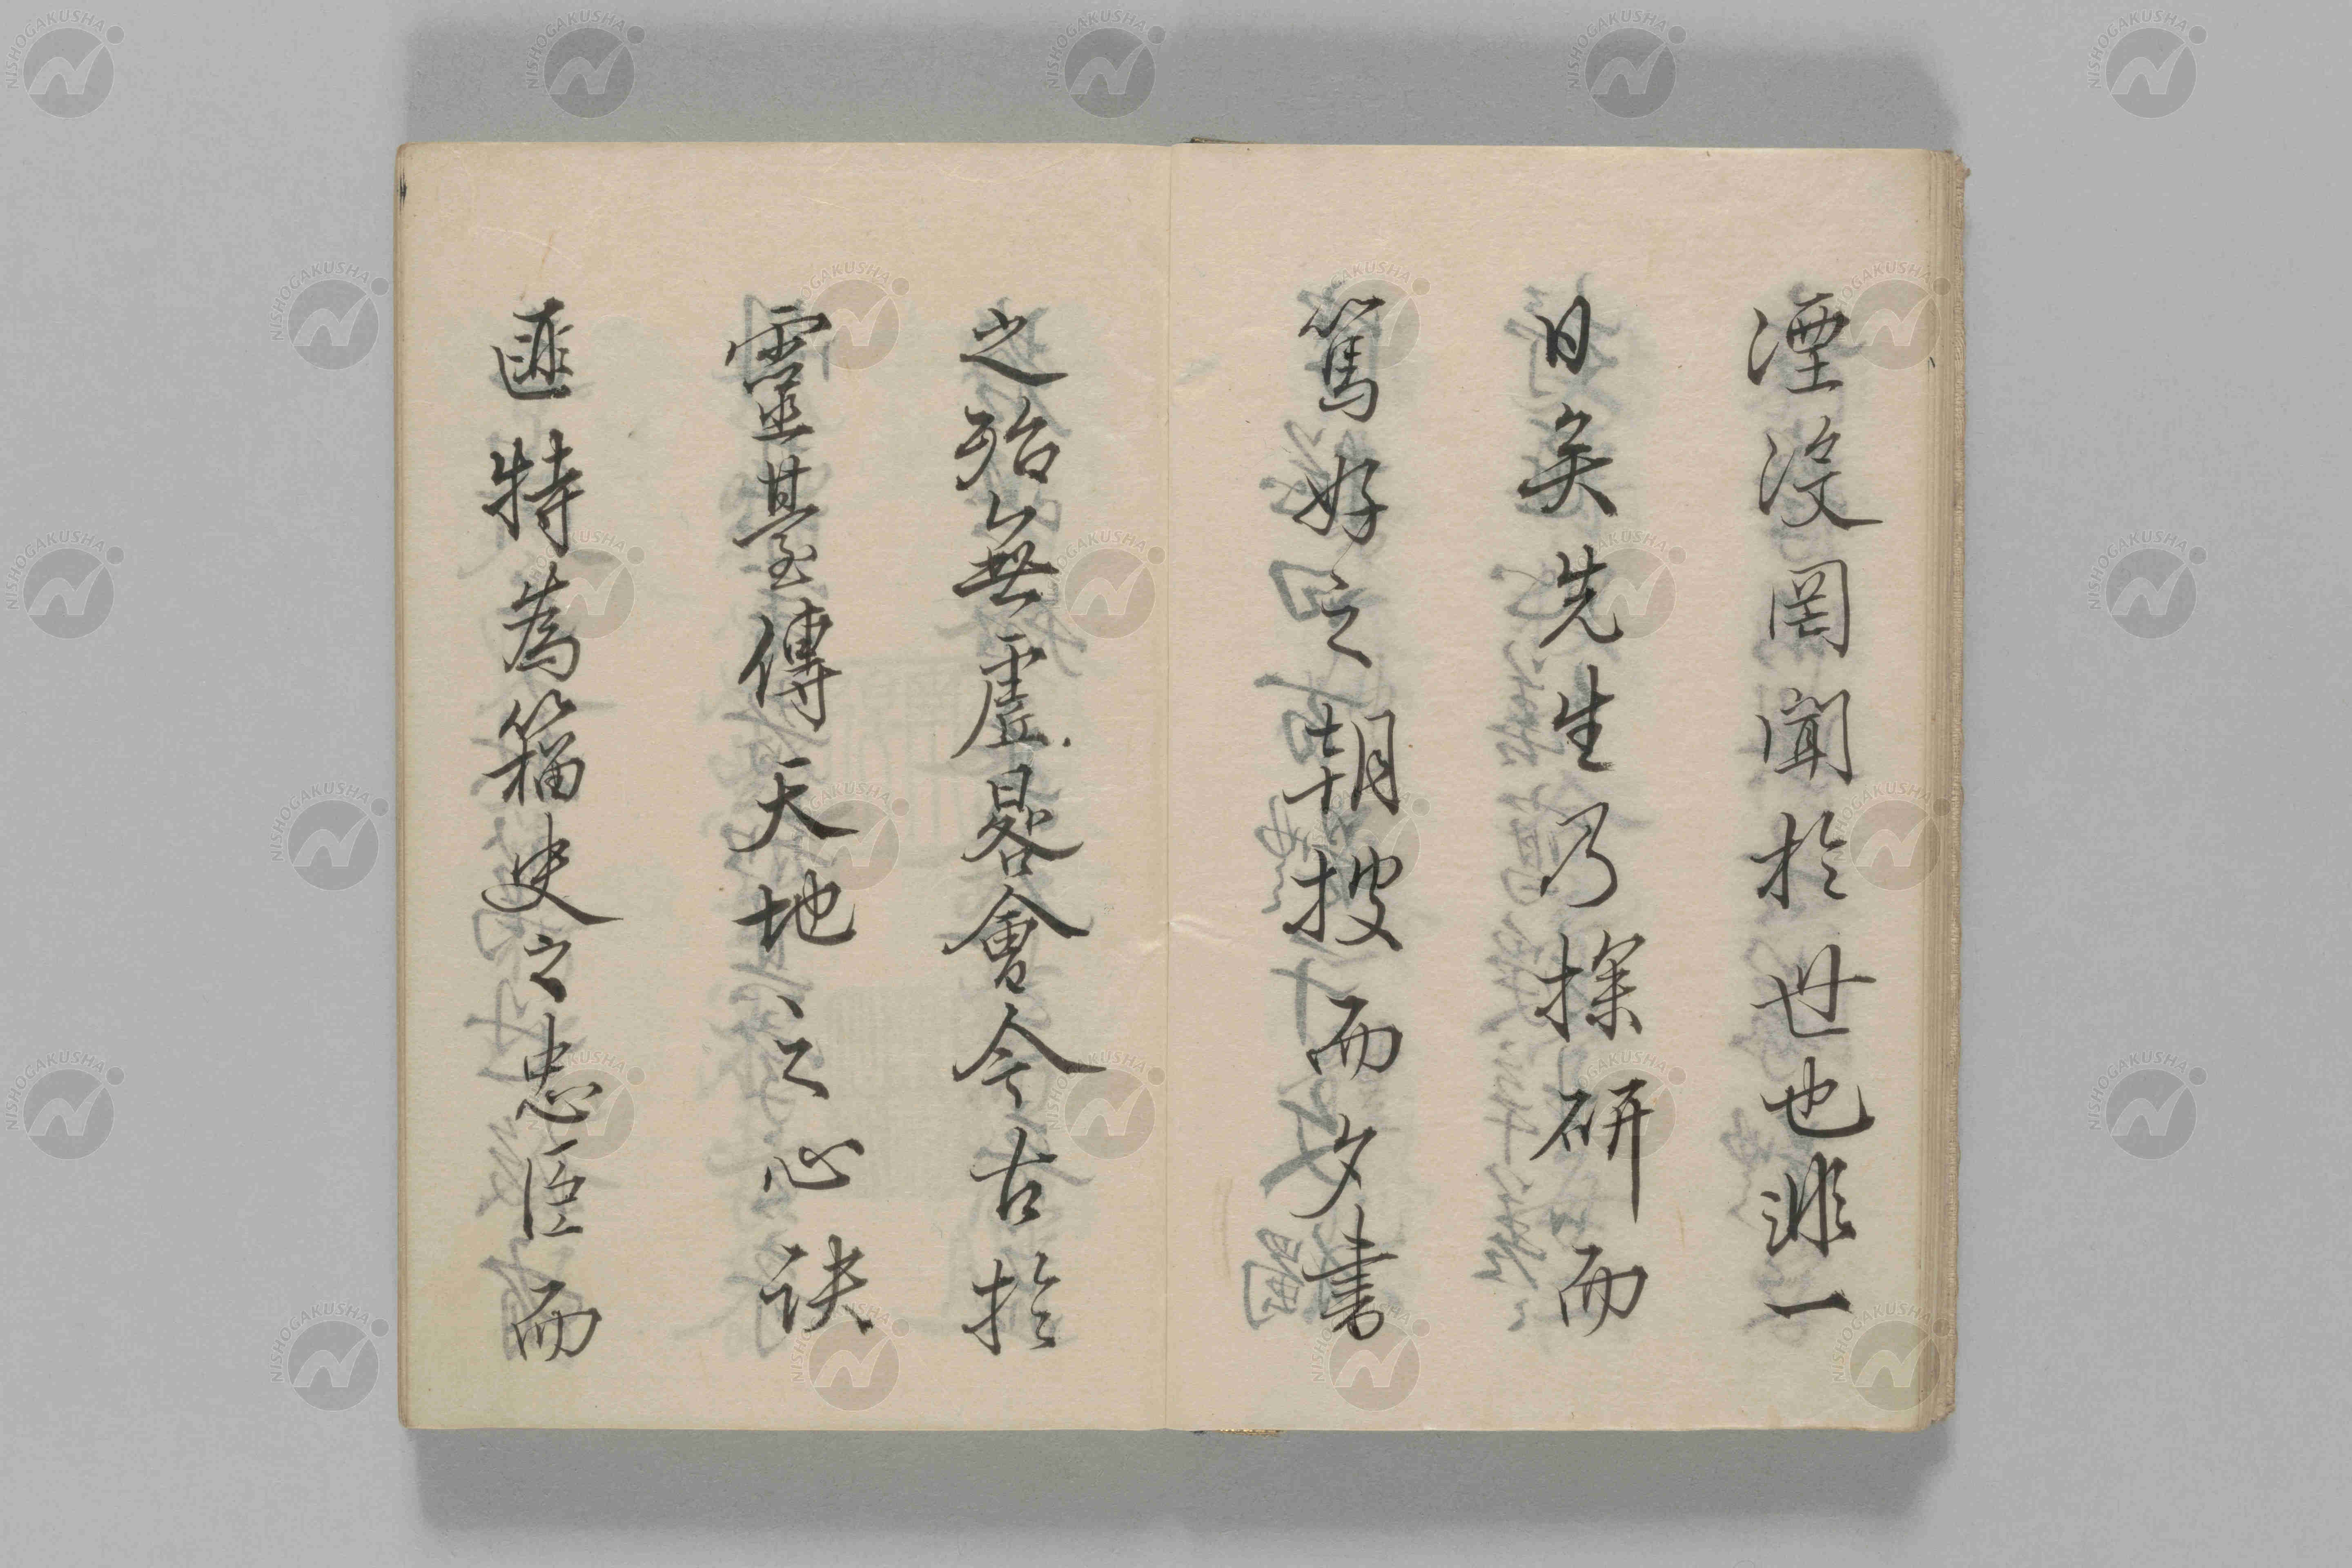 湮没罔聞於世也非一
日矣先生乃探研而
篤好之朝搜而夕書
之殆無虛晷會今古於
靈臺傳天地之心訣
匪特為籀史之忠臣而